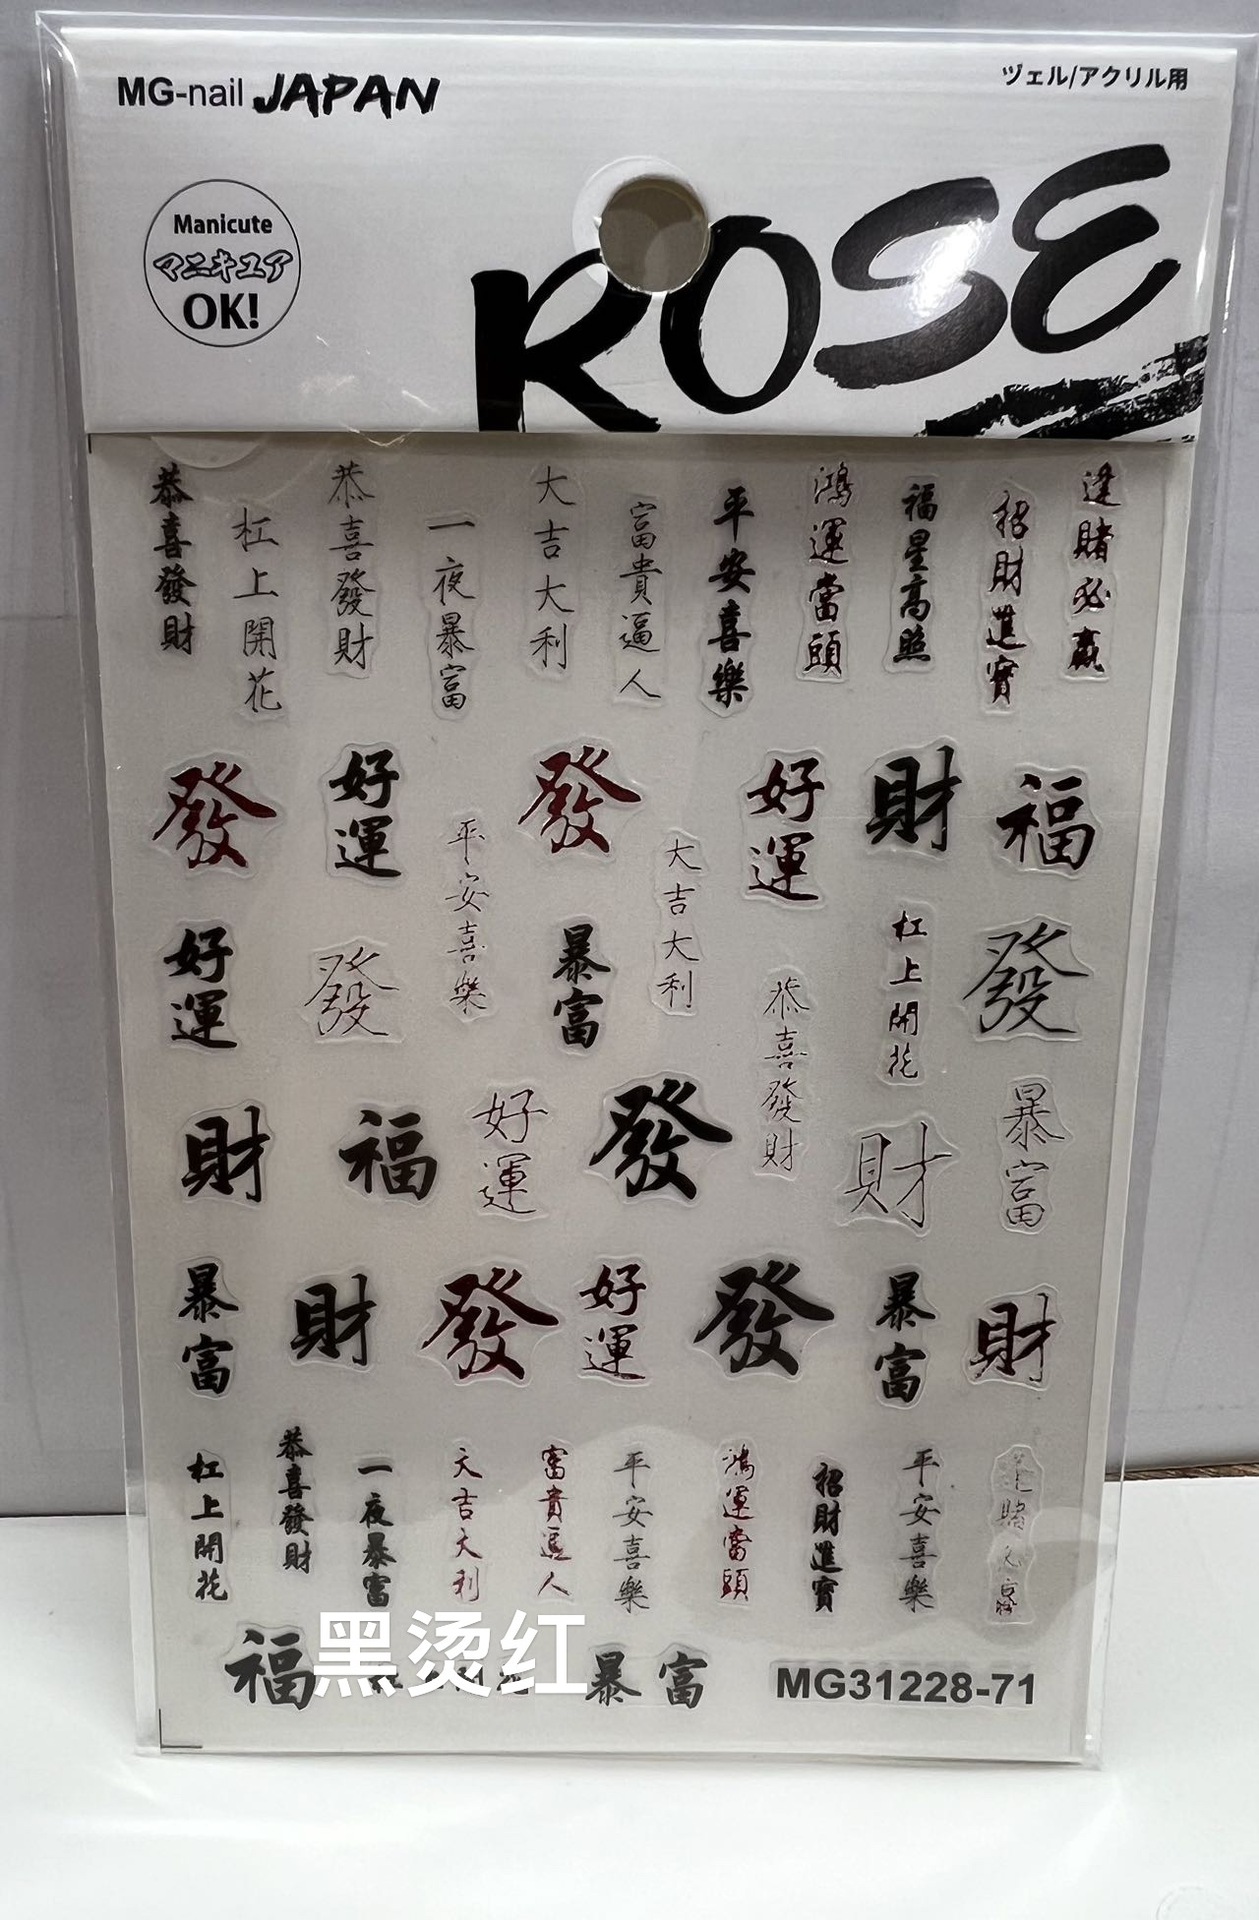 MG-nail JAPAN
ヅェル/アクリル用
Manicute
マニキュア
OK!
ROSE
恭喜發財
杠上開花
恭喜發財
一夜暴富
大吉大利
富貴逼人
平安喜樂
鴻運當頭
福星高照
招財進寶
逢賭必贏
發
好運
平安喜樂
發
大吉大利
好運
財
福
好運
發
暴富
恭喜發財
杠上開花
發
財
福
好運
發
財
暴富
暴富
財
發
好運
發
暴富
財
杠上開花
恭喜發財
一夜暴富
大吉大利
富貴逼人
平安喜樂
鴻運當頭
招財進寶
平安喜樂
逢賭必贏
福
黑烫红
暴富
MG31228-71